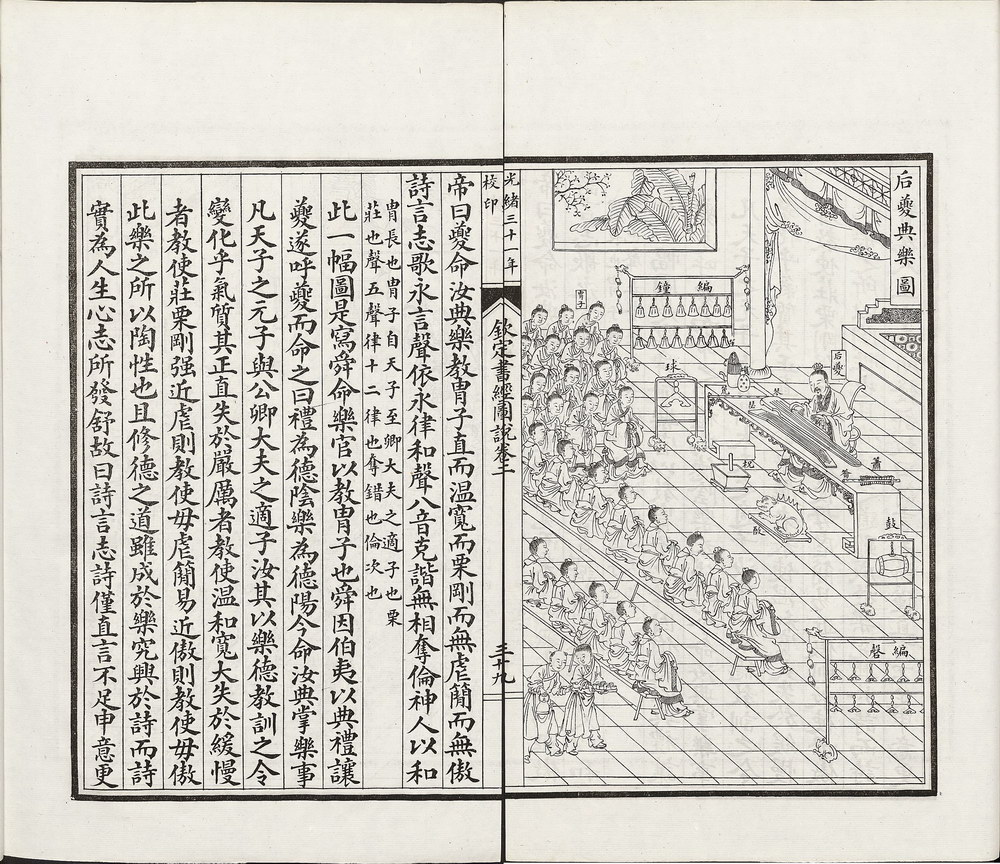 后夔典樂圖
編鐘
冑子
球
后夔
琴
瑟
柷
簫
管
敔
鼓
編磬
光緒三十一年
校印
欽定書經圖說卷二
三十九
帝曰夔命汝典樂教冑子直而溫寬而栗剛而無虐簡而無傲
詩言志歌永言聲依永律和聲八音克諧無相奪倫神人以和
冑長也冑子自天子至卿大夫之適子也栗
莊也聲五聲律十二律也奪錯也倫次也
此一幅圖是寫舜命樂官以教冑子也舜因伯夷以典禮讓
夔遂呼夔而命之曰禮為德陰樂為德陽今命汝典掌樂事
凡天子之元子與公卿大夫之適子汝其以樂德教訓之令
變化乎氣質其正直失於嚴厲者教使溫和寬大失於緩慢
者教使莊栗剛强近虐則教使毋虐簡易近傲則教使毋傲
此樂之所以陶性也且修德之道雖成於樂究興於詩而詩
實為人生心志所發舒故曰詩言志詩僅直言不足申意更